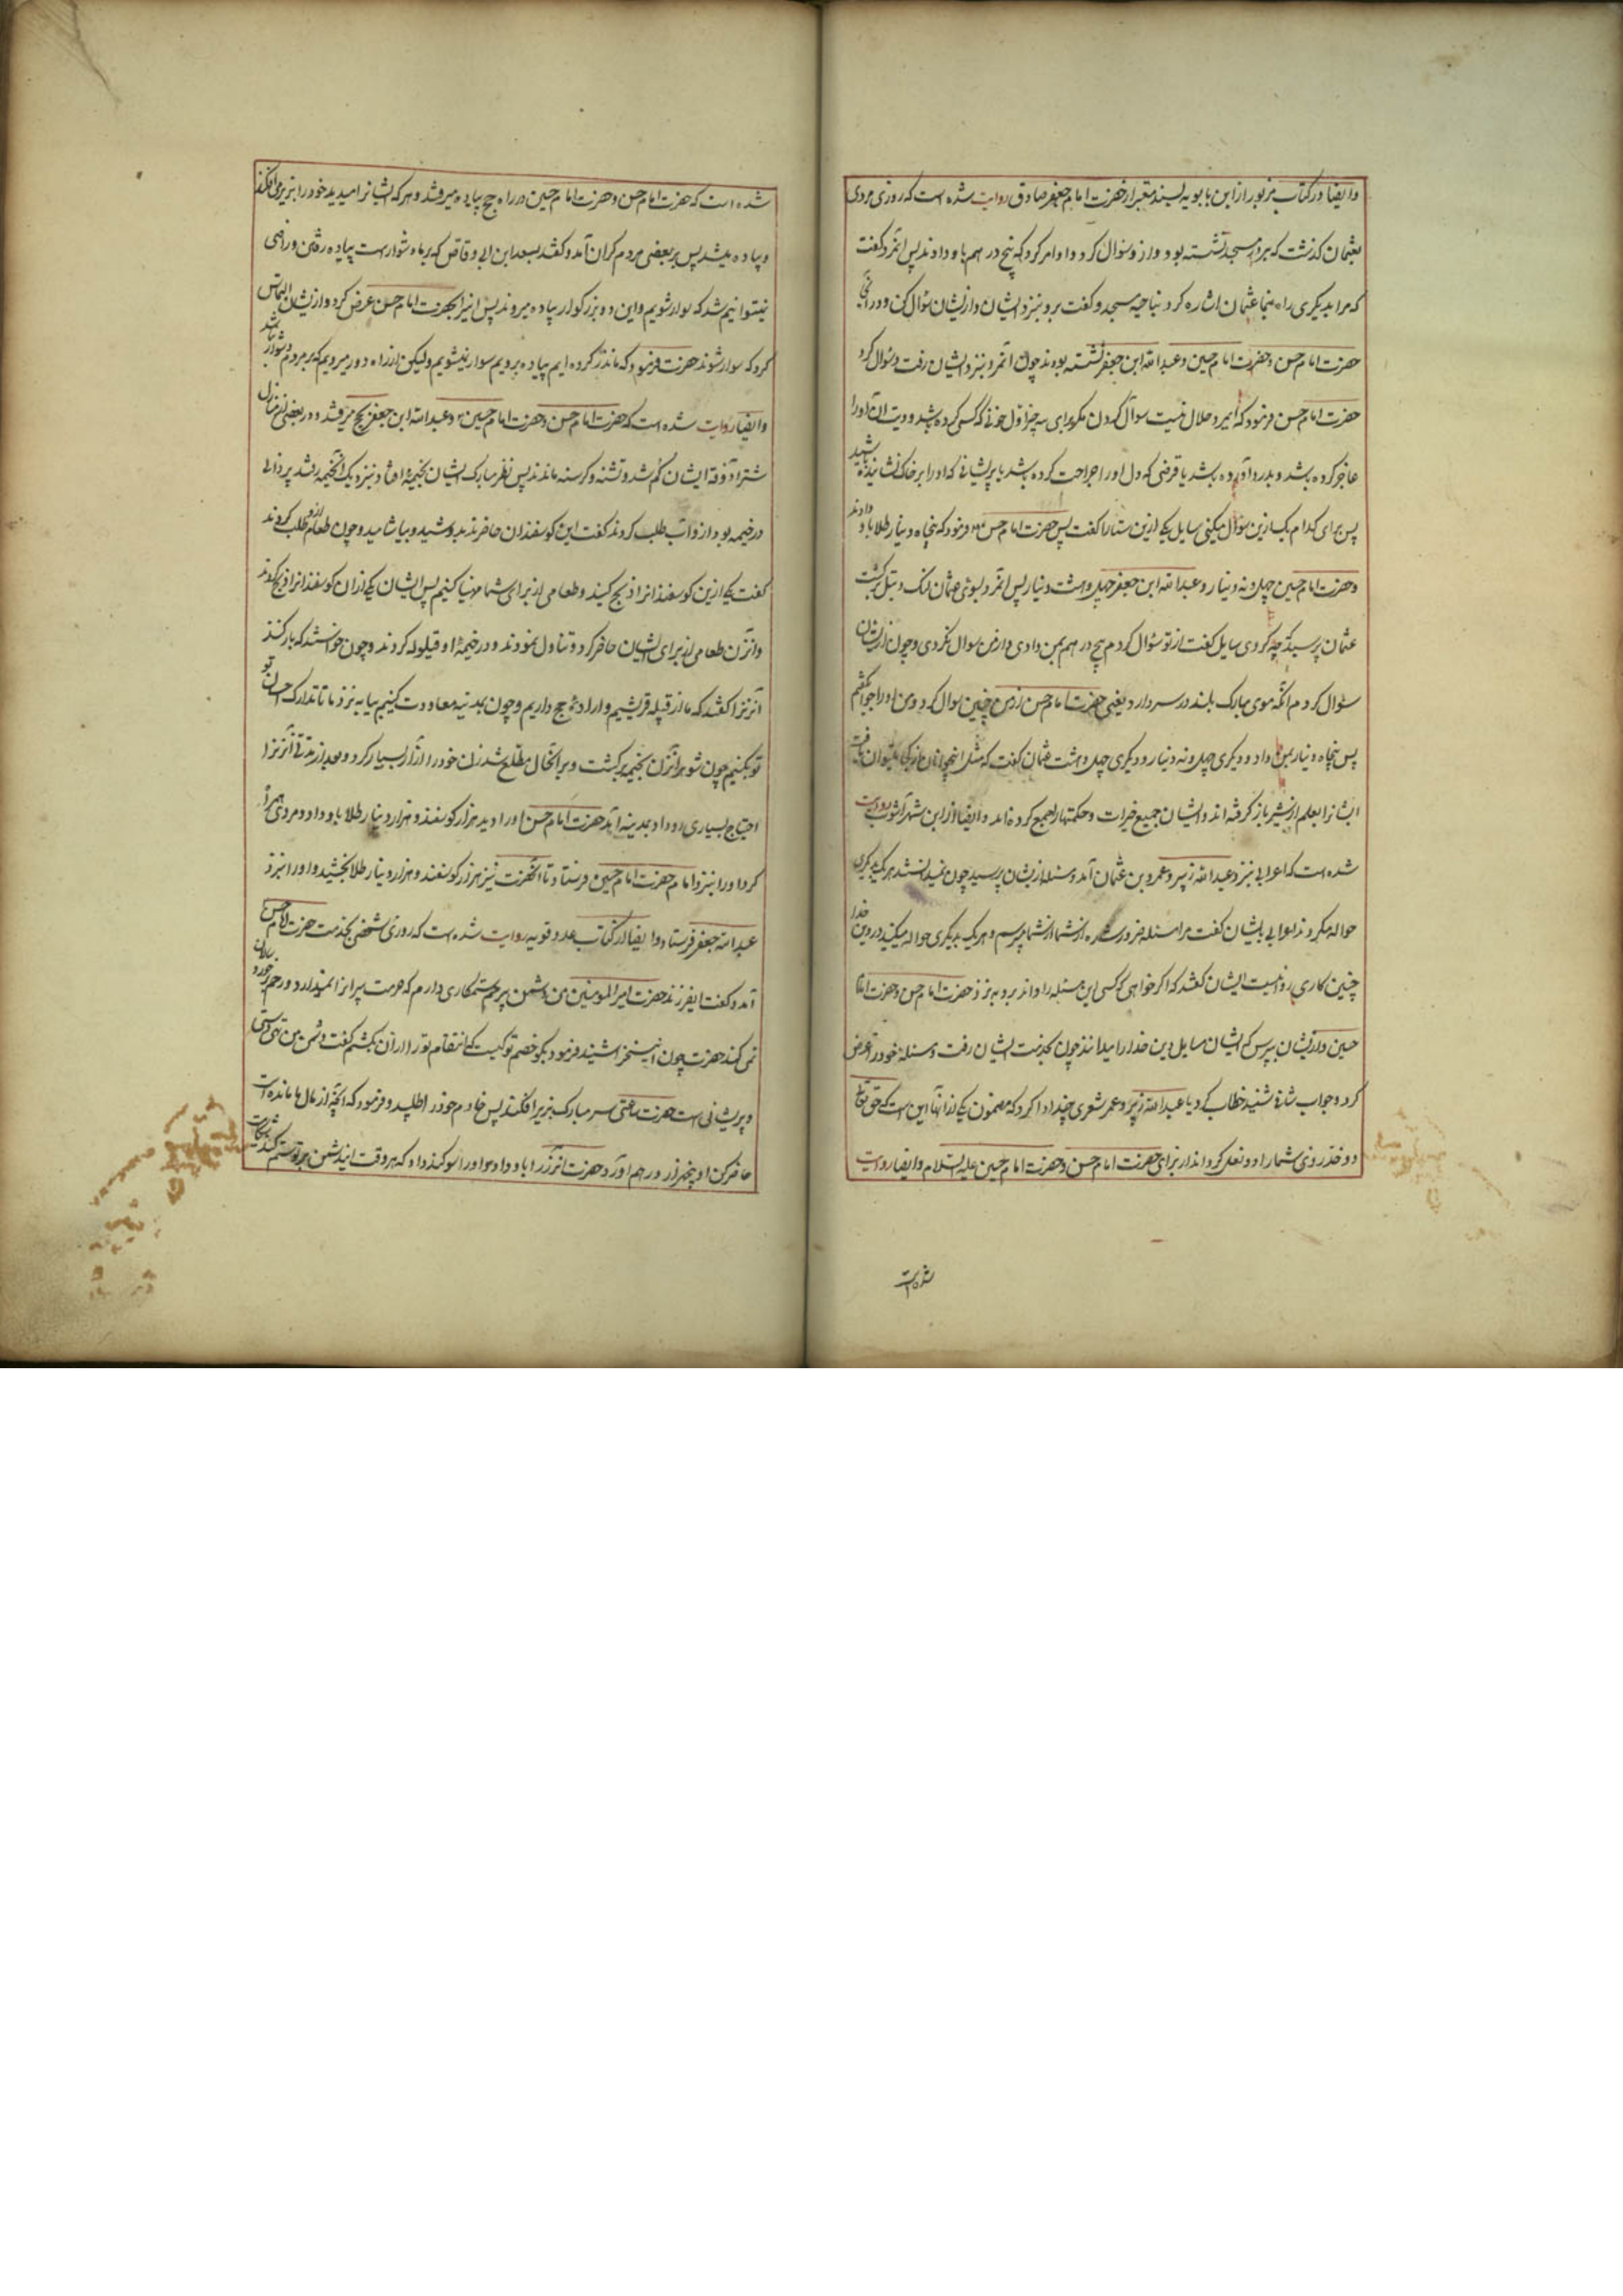 وایضا در کتاب مزبور از ابن بابویه بسند معتبر از حضرت امام جعفر صادق روایت شده است که روزی مردی
بعثمان گذشت که بر در مسجد نشسته بود و از و سؤال کرد و او امر کرد که پنج درهم باو دادند پس آنمرد گفت
که مرا بدیگری راه بنما عثمان اشاره کرد بناحیه مسجد و گفت برو بنزد ایشان و از ایشان سؤال کن و در آنجا
حضرت امام حسن و حضرت امام حسین و عبدالله ابن جعفر نشسته بودند چون آنمرد بنزد ایشان رفت و سؤال کرد
حضرت امام حسن فرمود که ایمرد حلال نیست سوآل کردن مکر برای سه چیز اول خونی که کسی کرده باشد و دیت آن او را
عاجز کرده باشد و بدرد آورده باشد یا قرضی که دل او را جراحت کرده باشد یا پریشانی که او را بر خاک نشانیده باشد
پس برای کدام یک ازین سؤال میکنی سایل یکی ازین سه تا را گفت پس حضرت امام حسن فرمود که پنجاه دینار طلا باو دادند
و حضرت امام حسین چهل و نه دینار و عبدالله ابن جعفر چهل و هشت دینار پس آنمرد بسوی عثمان برگشت
عثمان پرسید که چه کردی سایل گفت از تو سؤال کردم پنج درهم بمن دادی و از من سوال نکردی و چون از ایشان
سؤال کردم آنکه موی مبارک بلند در سر دارد یعنی حضرت امام حسن از من چنین سوال کرد و من او را جواب گفتم
پس پنجاه دینار بمن داد و دیگری چهل و نه دینار و دیگری چهل و هشت عثمان گفت که مثل این جوانان از کجا میتوان یافت
ایشانرا بعلم از شیر باز گرفته اند و ایشان جمیع خیرات و حکمتها را جمع کرده اند و ایضا از ابن شهر آشوب روایت
شده است که اعرابی بنزد عبدالله زبیر و عمرو بن عثمان آمد و مسئله از ایشان پرسید چون نمیدانستند هر یک بدیگری
حواله میکردند اعرابی بایشان گفت مرا مسئله ضرور شده از شما میپرسم و هر یک بدیگری حواله میکنید در دین خدا
چنین کاری روا نیست ایشان گفتند که اگر خواهی که کسی این مسئله را داند برو بنزد حضرت امام حسن و حضرت امام
حسین و از ایشان بپرس که ایشان مسایل دین خدا را میدانند چون بخدمت ایشان رفت و مسئله خود را عرض
کرد و جواب شافی شنید خطاب کرد با عبدالله زبیر و عمر شعری چند ادا کرد که مضمون یکی از آنها این است که حق تعالی
دو خد روی شما را دو نعل گرداند از برای حضرت امام حسن و حضرت امام حسین علیه السلام وایضا روایت
شده است
شده است که حضرت امام حسن و حضرت امام حسین در راه حج پیاده میرفتند و هر که ایشانرا میدید خود را بزیر می افکند
و پیاده میشد پس بر بعضی مردم گران آمد و گفتند بسعد ابن ابی وقاص که بر ما دشوار است پیاده رفتن و راضی
نیتوانیم شد که سوار شویم و این دو بزرگوار پیاده میروند پس اینرا بحضرت امام حسن عرض کرد و از ایشان التماس
کرد که سوار شوند حضرت فرمود که ما نذر کرده ایم پیاده برویم سوار نمیشویم ولیکن از راه دور میرویم که بر مردم دشوار نباشد
وایضا روایت شده است که حضرت امام حسن و حضرت امام حسین و عبدالله ابن جعفر بحج میرفتند و در بعضی از منازل
شتر آذوقه ایشان گم شد و تشنه و گرسنه ماندند پس نظر مبارک ایشان بخیمه افتاد و بنزدیک آنخیمه رفتند پیر زالی
در خیمه بود از و آب طلب کردند گفت این گوسفندان حاضرند بدوشید و بیاشامید و چون طعام از و طلب کردند
گفت یکی ازین گوسفندانرا ذبح کنید و طعامی از برای شما مهیا کنیم پس ایشان یکی از آن گوسفندانرا ذبح کردند
و آنزن طعامی از برای ایشان حاضر کرد و تناول نمودند و در خیمه او قیلوله کردند و چون خواستند که بار کنند
آنزنرا گفتند که ما از قبیله قریشیم و اراده حج داریم و چون بمدینه معاودت کنیم بیا به نزد ما تا تدارک احسان تو
تو بکنیم چون شوهر آنزن بخیمه برگشت و بر آنحال مطلع شد زن خود را آزار بسیار کرد و بعد از مدتی آنزنرا
احتیاج بسیاری رو داد بمدینه آمد حضرت امام حسن او را دید هزار گوسفند و هزار دینار طلا باو داد و مردی همراه
کرد او را بنزد امام حضرت امام حسین فرستاد تا آنحضرت نیز هزار گوسفند و هزار دینار طلا بخشید و او را بنزد
عبدالله جعفر فرستاد وایضا در کتاب عدد قویه روایت شده است که روزی شخصی بخدمت حضرت امام حسن
آمد و گفت ایفرزند حضرت امیر المومنین من دشمن بیرحم ستمکاری دارم که حرمت پیرانرا نمیدارد و رحم بر خوردسالان
نمیکند حضرت چون این سخن را شنید فرمود بگو خصم تو کیست که انتقام تو را از آن بکشم گفت دشمن من تهی دستی
و پریشانی است حضرت ساعتی سر مبارک بزیر افکند پس خادم خود را طلبید و فرمود که آنچه از مال ما مانده است
حاضر کن او پنجهزار درهم آورد حضرت آنزر را باو داد و او را سوگند داد که هر وقت این دشمن بر تو ستم کند شکایت